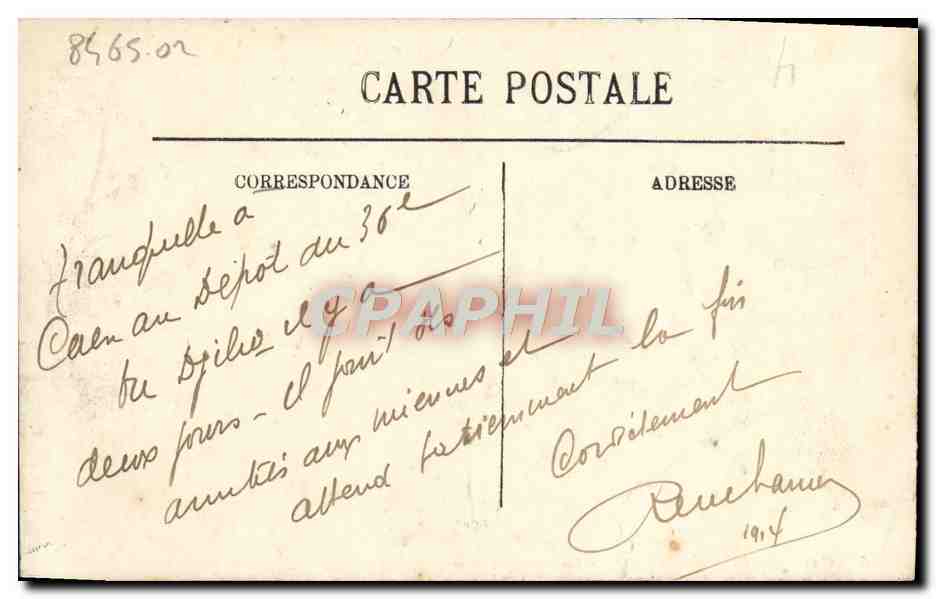 8465.02
4
CARTE POSTALE
CORRESPONDANCE
ADRESSE
tranquille a
Caen au Dépôt du 36e
vu il y a
deux jours - il joint ses
amitiés aux miennes et
attend patiemment la fin
Cordialement
1914
CPAPHIL